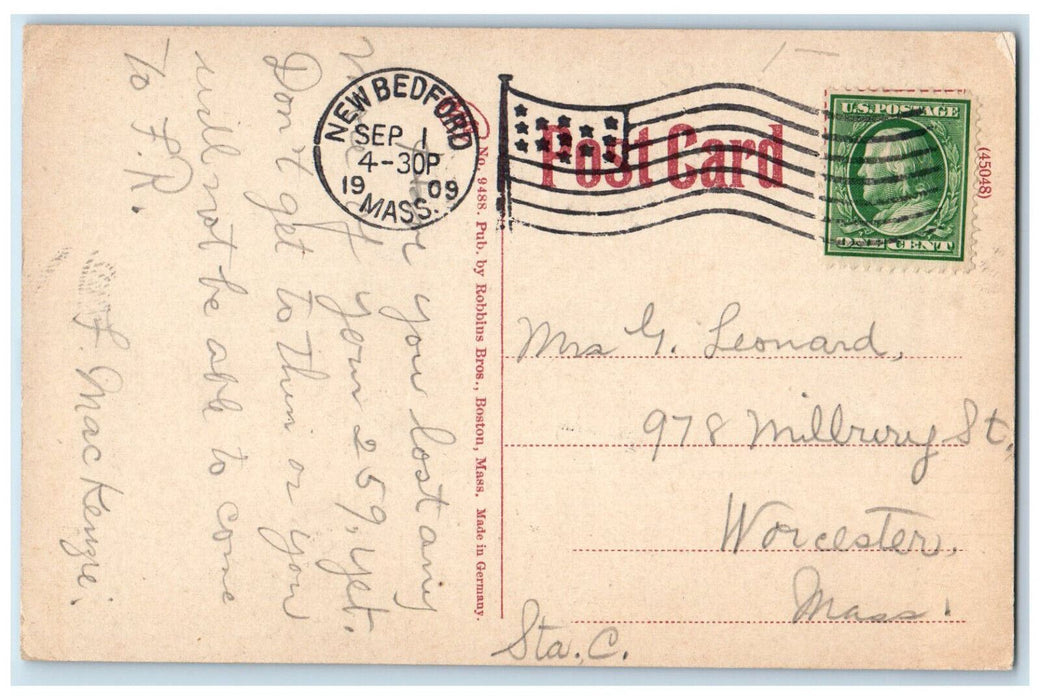 NEW BEDFORD
SEP 1
4-30P
1909
MASS.
Post Card
U.S. POSTAGE
ONE CENT
(45048)
No. 9488. Pub. by Robbins Bros., Boston, Mass. Made in Germany.
you lost any
of your 259, yet.
Don't get to thin or you
will not be able to come
to F.R.
F. MacKenzie.
Mrs G. Leonard,
978 Millbury St,
Worcester,
Mass.
Sta. C.